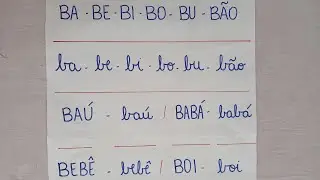 BA · BE · BI · BO - BU - BÃO
ba - be · bi · bo - bu - bão
BAÚ - baú / BABÁ - babá
BEBÊ - bebê / BOI - boi